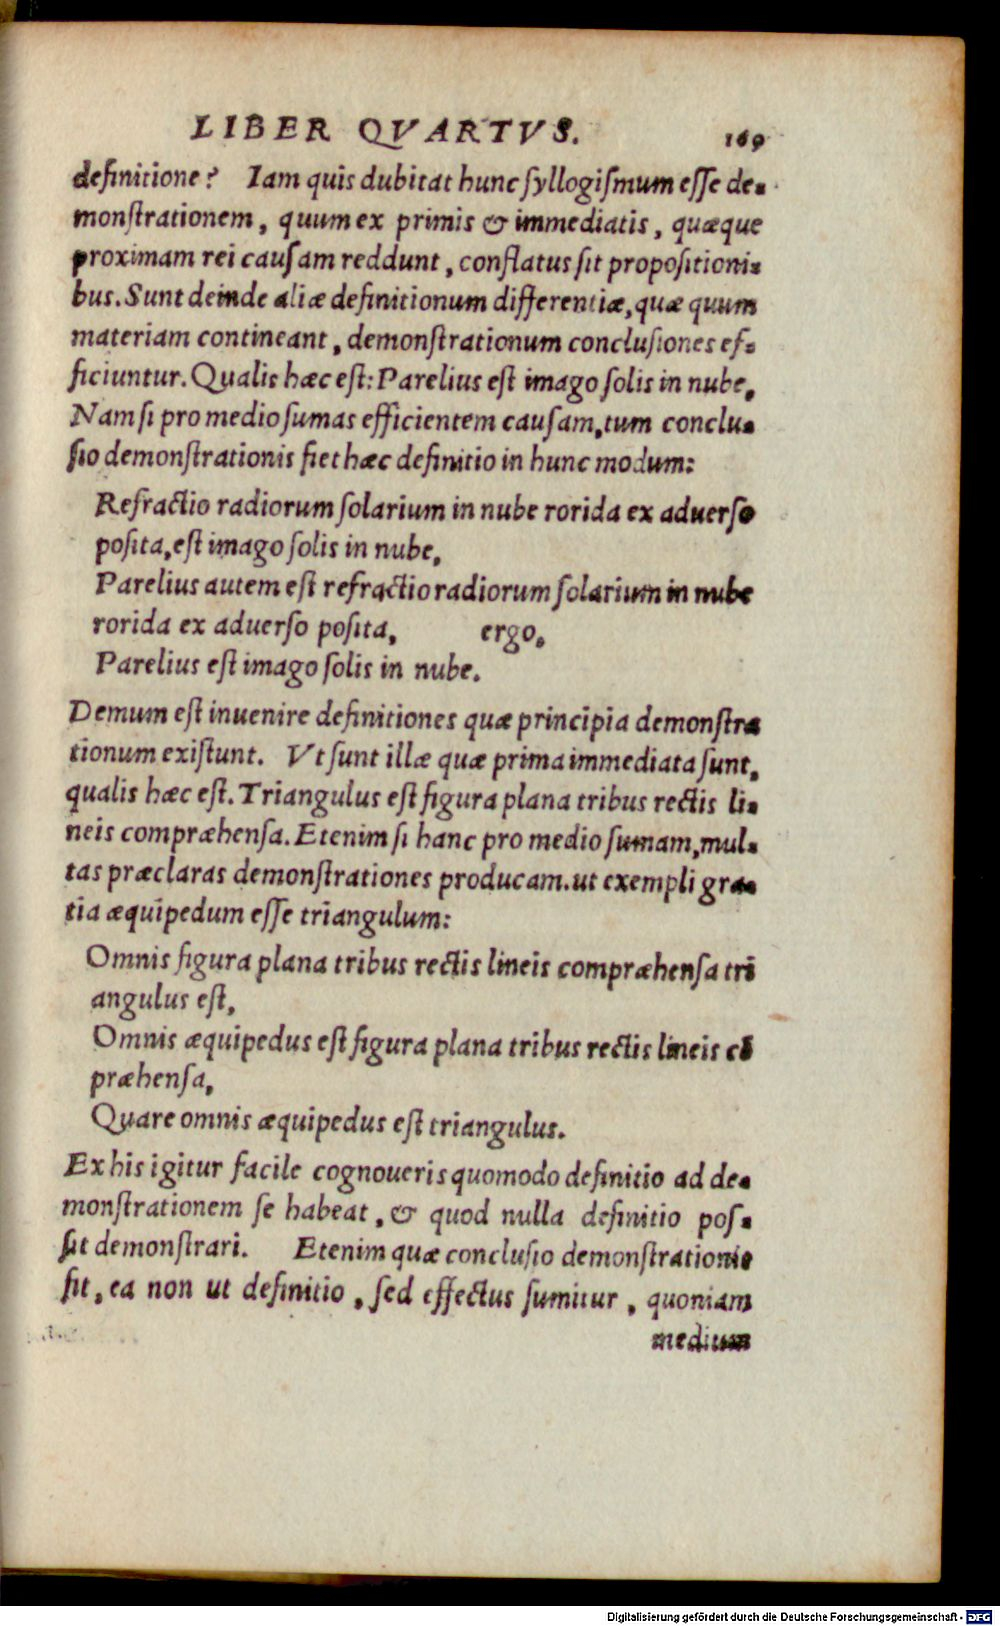 LIBER QVARTVS. 169
definitione? Iam quis dubitat hunc syllogiſmum eſſe de-
monſtrationem, quum ex primis & immediatis, quæque
proximam rei cauſam reddunt, conflatus ſit propoſitioni-
bus. Sunt deinde aliæ definitionum differentiæ, quæ quum
materiam contineant, demonſtrationum concluſiones ef-
ficiuntur. Qualis hæc eſt: Parelius eſt imago ſolis in nube,
Nam ſi pro medio ſumas efficientem cauſam, tum conclu-
ſio demonſtrationis fiet hæc definitio in hunc modum:
Refractio radiorum ſolarium in nube rorida ex aduerſo
poſita, eſt imago ſolis in nube,
Parelius autem eſt refractio radiorum ſolarium in nube
rorida ex aduerſo poſita, ergo,
Parelius eſt imago ſolis in nube.
Demum eſt inuenire definitiones quæ principia demonſtra
tionum exiſtunt. Vt ſunt illæ quæ prima immediata ſunt,
qualis hæc eſt. Triangulus eſt figura plana tribus rectis li-
neis compræhenſa. Etenim ſi hanc pro medio ſumam, mul-
tas præclaras demonſtrationes producam. ut exempli gra-
tia æquipedum eſſe triangulum:
Omnis figura plana tribus rectis lineis compræhenſa tri
angulus eſt,
Omnis æquipedus eſt figura plana tribus rectis lineis cõ
præhenſa,
Quare omnis æquipedus eſt triangulus.
Ex his igitur facile cognoueris quomodo definitio ad de-
monſtrationem ſe habeat, & quod nulla definitio poſ-
ſit demonſtrari. Etenim quæ concluſio demonſtrationis
ſit, ea non ut definitio, ſed effectus ſumitur, quoniam
medium
Digitalisierung gefördert durch die Deutsche Forschungsgemeinschaft - DFG